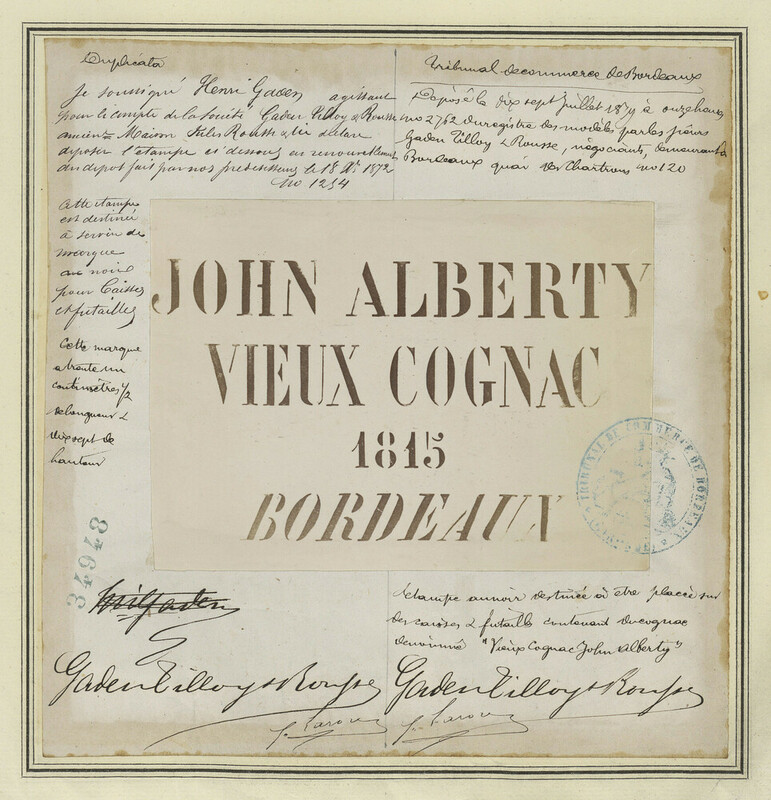 Duplicata
Je soussigné Henri Gaden agissant
pour le compte de la Société Gaden Tilloy & Rousse
ancienne Maison Jules Rousse & Cie déclare
déposer l'étampe ci dessous en renouvellement
du dépôt fait par nos prédécesseurs le 18 Xbre 1872
No 1254
Tribunal de commerce de Bordeaux
Déposé le dix sept Juillet 1879 à onze heures
no 2762 du registre des modèles par les sieurs
Gaden Tilloy & Rousse, négociants, demeurant à
Bordeaux quai des Chartrons no 120
Cette étampe
est destinée
à servir de
marque
au noir
pour Caisses
et futailles
Cette marque
a trente un
centimètres 1/2
de longueur &
dix sept de
hauteur
JOHN ALBERTY
VIEUX COGNAC
1815
BORDEAUX
TRIBUNAL DE COMMERCE DE BORDEAUX
34948
Gaden Tilloy & Rousse
Etampe au noir destinée à être placée sur
des caisses & futailles contenant du cognac
dénommé "Vieux Cognac John Alberty"
Gaden Tilloy & Rousse